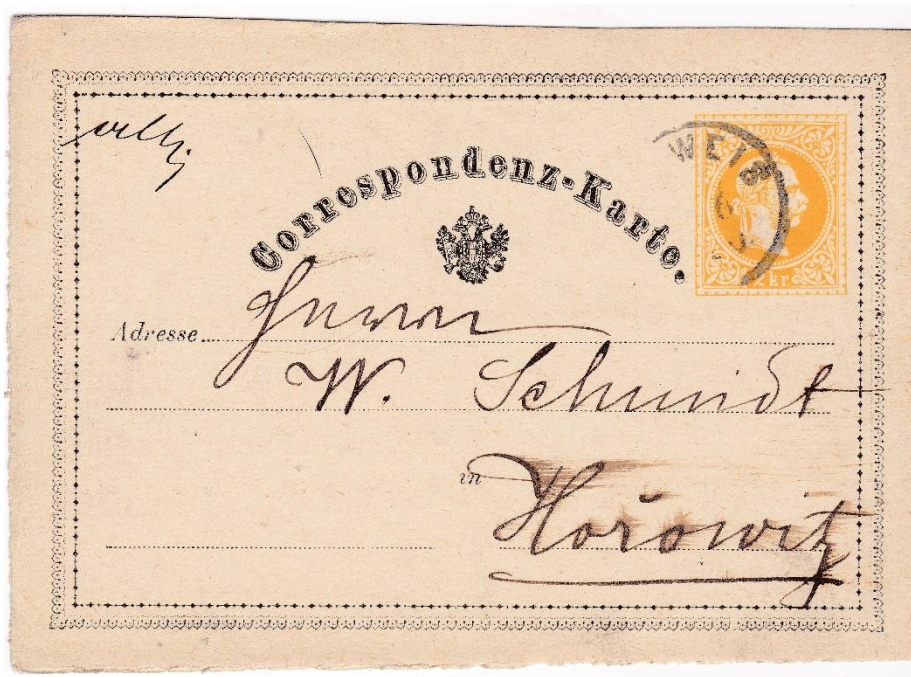 Correspondenz-Karte.
WEIS
2 kr
Adresse
Herrn
W. Schmidt
in
Hořowitz